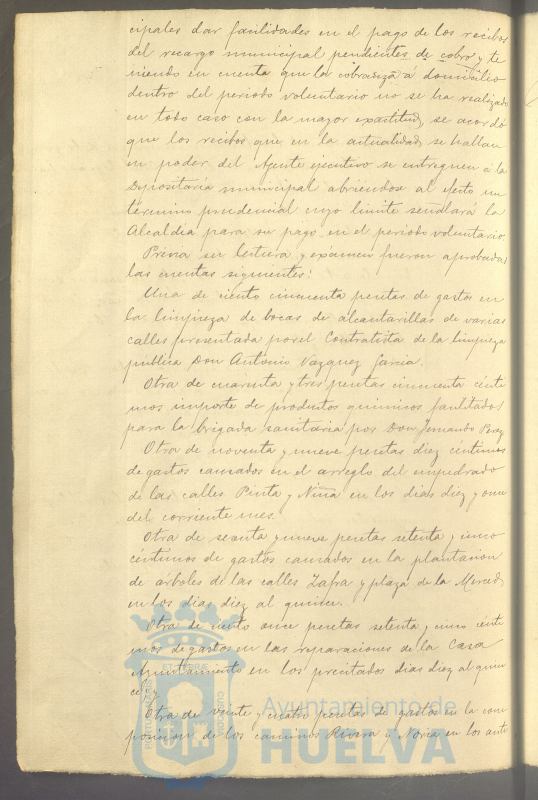 cipales dar facilidades en el pago de los recibos
del recargo municipal pendientes de cobro y te
niendo en cuenta que la cobranza á domicilio
dentro del periodo voluntario no se ha realizado
en todo caso con la mayor exactitud, se acordó
que los recibos que en la actualidad se hallan
en poder del Agente ejecutivo se entreguen á la
Depositaría municipal abriendose al efecto un
término prudencial cuyo limite señalará la
Alcaldia para su pago en el periodo voluntario
Previa su lectura y exámen fueron aprobadas
las cuentas siguientes:
Una de ciento cincuenta pesetas de gastos en
la limpieza de bocas de alcantarillas de varias
calles presentada por el Contratista de la limpieza
publica Don Antonio Vazquez Garcia.
Otra de cuarenta y tres pesetas cincuenta cénti
mos importe de productos quimicos facilitados
para la brigada sanitaria por Don Fernando Perez
Otra de noventa y nueve pesetas diez céntimos
de gastos causados en el arreglo del empedrado
de las calles Pinta y Niña en los dias diez y once
del corriente mes.
Otra de sesenta y nueve pesetas setenta y cinco
céntimos de gastos causados en la plantacion
de árboles de las calles Zafra y plaza de la Merced,
en los dias diez al quince.
Otra de ciento once pesetas setenta y cinco cénti
mos de gastos en las reparaciones de la Casa
Ayuntamiento en los precitados dias diez al quin
ce; y
Otra de veinte y cuatro pesetas de gastos en la com
posicion de los caminos Rivera y Noria en los ante
Ayuntamiento de
HUELVA
PORTUS MARIS
ET TERRÆ
CUSTODIA